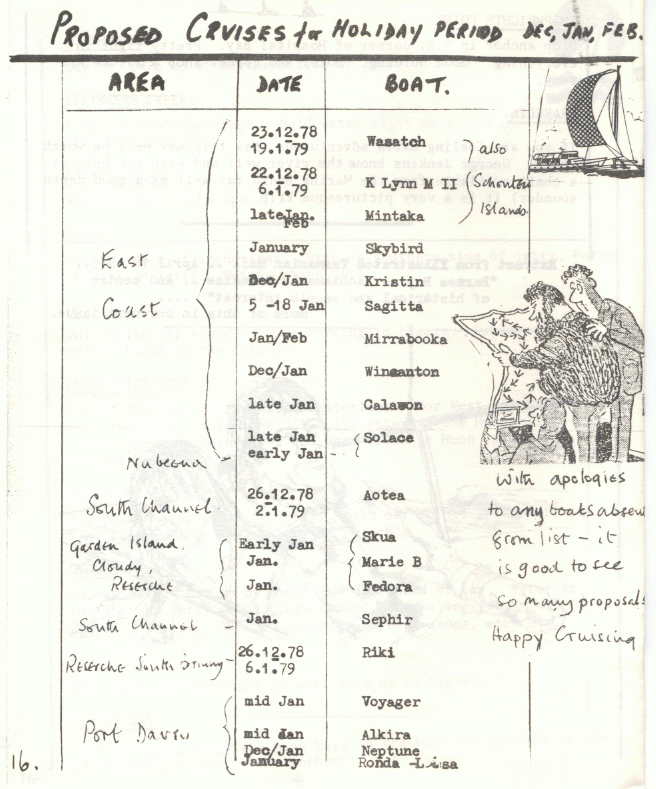 PROPOSED CRUISES for HOLIDAY PERIOD DEC, JAN, FEB.
AREA DATE BOAT.
23.12.78
19.1.79 Wasatch
22.12.78
6.1.79 K Lynn M II
also
Schouten
Islands
late Jan.
Feb Mintaka
January Skybird
East
Coast
Dec/Jan Kristin
5 -18 Jan Sagitta
Jan/Feb Mirrabooka
Dec/Jan Wincanton
late Jan Calawon
late Jan Solace
Nubeena early Jan
South Channel. 26.12.78
2.1.79 Aotea
Garden Island,
Cloudy,
Recherche
Early Jan Skua
Jan. Marie B
Jan. Fedora
South Channel - Jan. Sephir
Recherche South 26.12.78
6.1.79 Riki
Port Davey
mid Jan Voyager
mid Jan Alkira
Dec/Jan Neptune
January Ronda -Lisa
With apologies
to any boats absent
from list - it
is good to see
so many proposals
Happy Cruising
16.